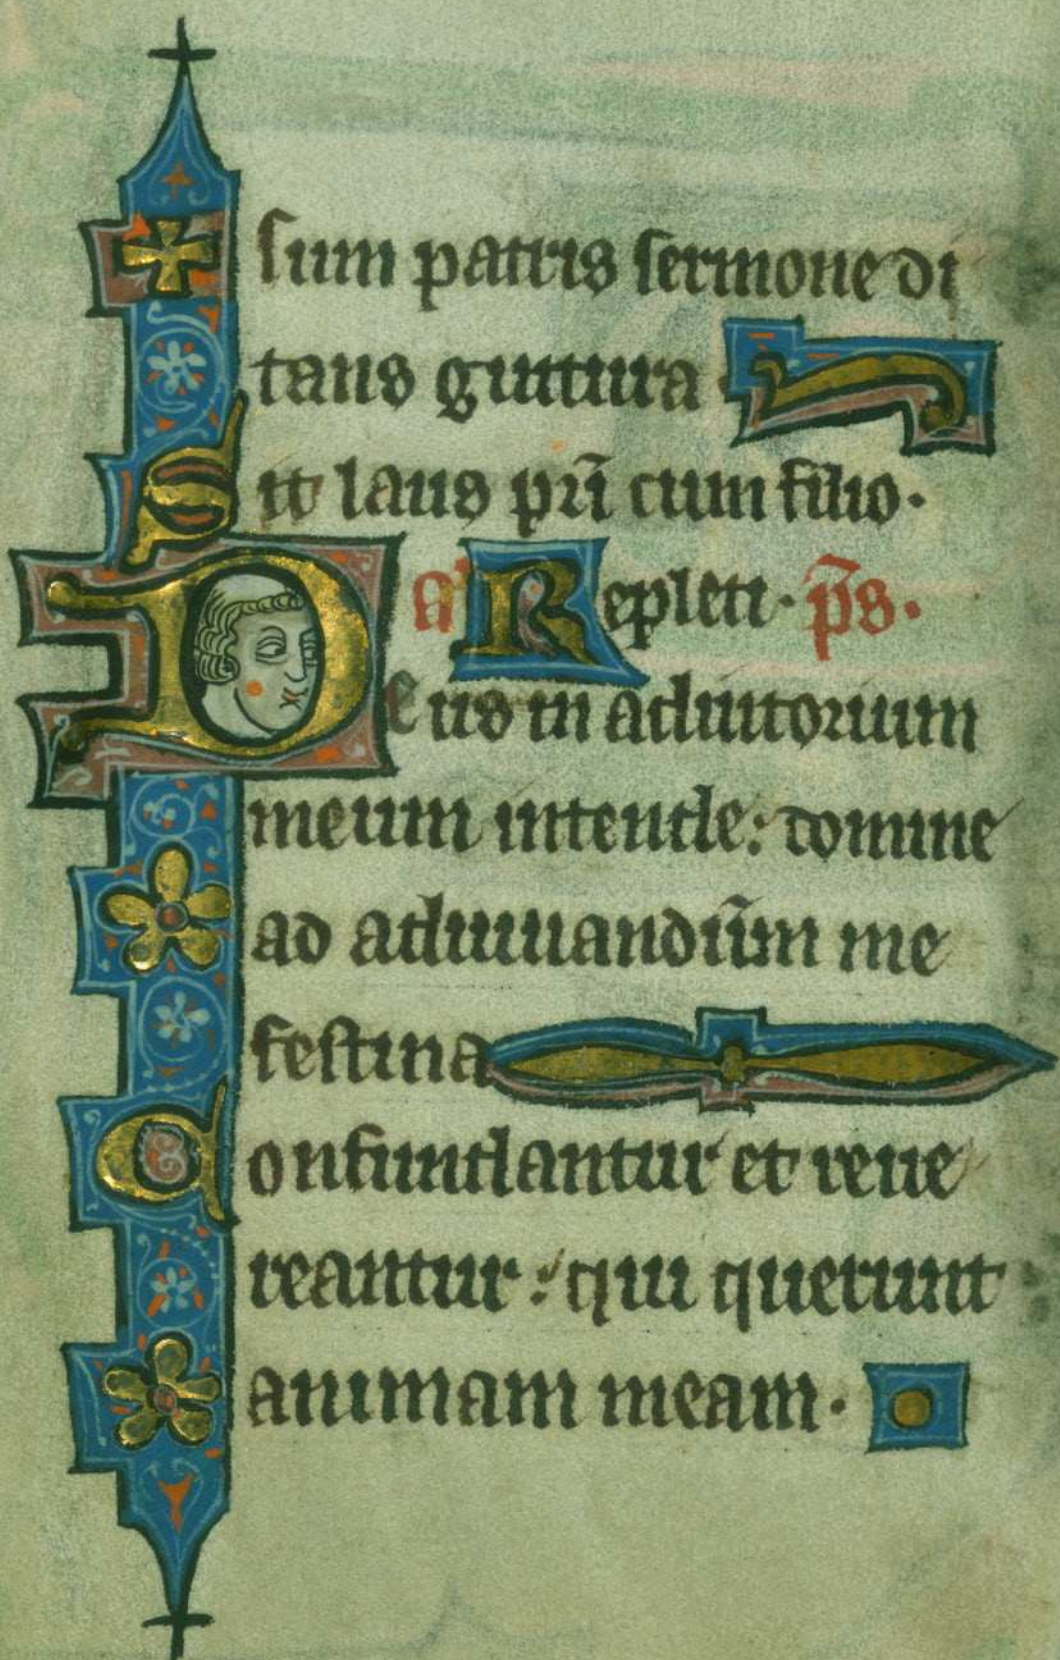 sum patris sermone di
tans guttura
Sit laus pri̅ cum filio.
a' Repleti. p̅s.
Deus in adiutorium
meum intende: domine
ad adiuuandu̅m me
festina
Confundantur et reue
reantur: qui querunt
animam meam.